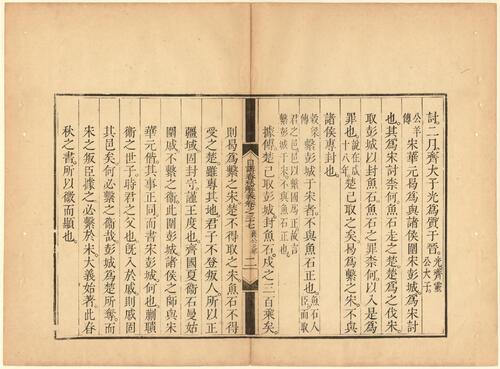 討二月齊大子光爲質于晉光齊靈公大子
公羊傳宋華元曷爲與諸侯圍宋彭城爲宋討
也其爲宋討柰何魚石走之楚楚爲之伐宋
取彭城以封魚石魚石之罪柰何以入是爲
罪也說在成十八年楚已取之矣曷爲繫之宋不與
諸侯專封也
穀梁傳繫彭城于宋者不與魚石正也魚石人臣而取
君之邑以繫國爲正故言
繫彭城于宋不與魚石正也
據傳楚已取彭城封魚石戍之三百乘矣
日講春秋解義卷之三七
則曷爲繫之宋楚不得取之宋魚石不得
受之楚雖專其地君子不登叛人所以正
疆域固封守謹王度也齊國夏衞石曼姑
圍戚不繫之衞此圍彭城諸侯之師與宋
華元偕其事正同而書宋彭城何也蒯聵
衞之世子時君之父也旣入於戚則戚固
其邑矣何必繫之衞哉彭城爲楚所奪而
宋之叛臣據之必繫於宋大義始著此春
秋之書所以微而顯也